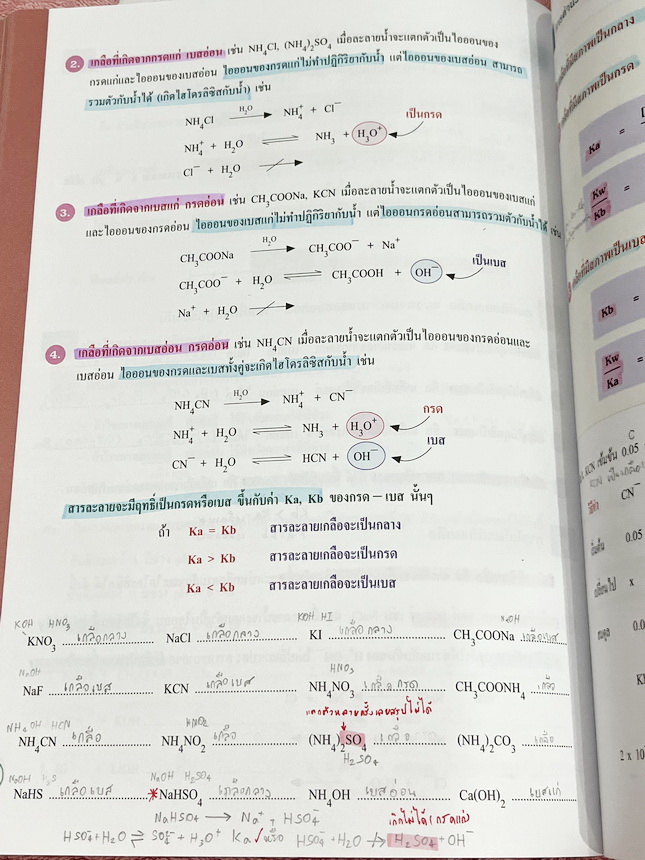 2. เกลือที่เกิดจากกรดแก่ เบสอ่อน เช่น NH₄Cl, (NH₄)₂SO₄ เมื่อละลายน้ำจะแตกตัวเป็นไอออนของ
กรดแก่และไอออนของเบสอ่อน ไอออนของกรดแก่ไม่ทำปฏิกิริยากับน้ำ แต่ไอออนของเบสอ่อน สามารถ
รวมตัวกับน้ำได้ (เกิดไฮโดรลิซิสกับน้ำ) เช่น
NH₄Cl —H₂O→ NH₄⁺ + Cl⁻
เป็นกรด
NH₄⁺ + H₂O ⇌ NH₃ + H₃O⁺
Cl⁻ + H₂O ↛
3. เกลือที่เกิดจากเบสแก่ กรดอ่อน เช่น CH₃COONa, KCN เมื่อละลายน้ำจะแตกตัวเป็นไอออนของเบสแก่
และไอออนของกรดอ่อน ไอออนของเบสแก่ไม่ทำปฏิกิริยากับน้ำ แต่ไอออนกรดอ่อนสามารถรวมตัวกับน้ำได้ เช่น
CH₃COONa —H₂O→ CH₃COO⁻ + Na⁺
เป็นเบส
CH₃COO⁻ + H₂O ⇌ CH₃COOH + OH⁻
Na⁺ + H₂O ↛
4. เกลือที่เกิดจากเบสอ่อน กรดอ่อน เช่น NH₄CN เมื่อละลายน้ำจะแตกตัวเป็นไอออนของกรดอ่อนและ
เบสอ่อน ไอออนของกรดและเบสทั้งคู่จะเกิดไฮโดรลิซิสกับน้ำ เช่น
NH₄CN —H₂O→ NH₄⁺ + CN⁻
กรด
NH₄⁺ + H₂O ⇌ NH₃ + H₃O⁺
เบส
CN⁻ + H₂O ⇌ HCN + OH⁻
สารละลายจะมีฤทธิ์เป็นกรดหรือเบส ขึ้นกับค่า Ka, Kb ของกรด – เบส นั้นๆ
ถ้า Ka = Kb สารละลายเกลือจะเป็นกลาง
Ka > Kb สารละลายเกลือจะเป็นกรด
Ka < Kb สารละลายเกลือจะเป็นเบส
KOH HNO₃ KOH HI NaOH
KNO₃ เกลือกลาง NaCl เกลือกลาง KI เกลือกลาง CH₃COONa เกลือเบส
NaOH HNO₃
NaF เกลือเบส KCN เกลือเบส NH₄NO₃ เกลือกรด CH₃COONH₄ เกลือ
แตกตัวหลายครั้งเลยสรุปไม่ได้
NH₄OH HCN HNO₂
NH₄CN เกลือ NH₄NO₂ เกลือ (NH₄)₂SO₄ เกลือ (NH₄)₂CO₃ เกลือ
H₂SO₄
NaOH H₂S NaOH H₂SO₄
NaHS เกลือเบส *NaHSO₄ เกลือกลาง NH₄OH เบสอ่อน Ca(OH)₂ เบสแก่
NaHSO₄ → Na⁺ + HSO₄⁻ เกิดไม่ได้ (กรดแก่)
HSO₄⁻ + H₂O ⇌ SO₄²⁻ + H₃O⁺ Ka ✓ หรือ HSO₄⁻ + H₂O ↛ H₂SO₄ + OH⁻
Ka =
Kw/Kb =
Kb =
Kw/Ka =
C
KCN เข้มข้น 0.05
CN⁻
0.05
เปลี่ยนไป x
สมดุล 0.0
2 x 10